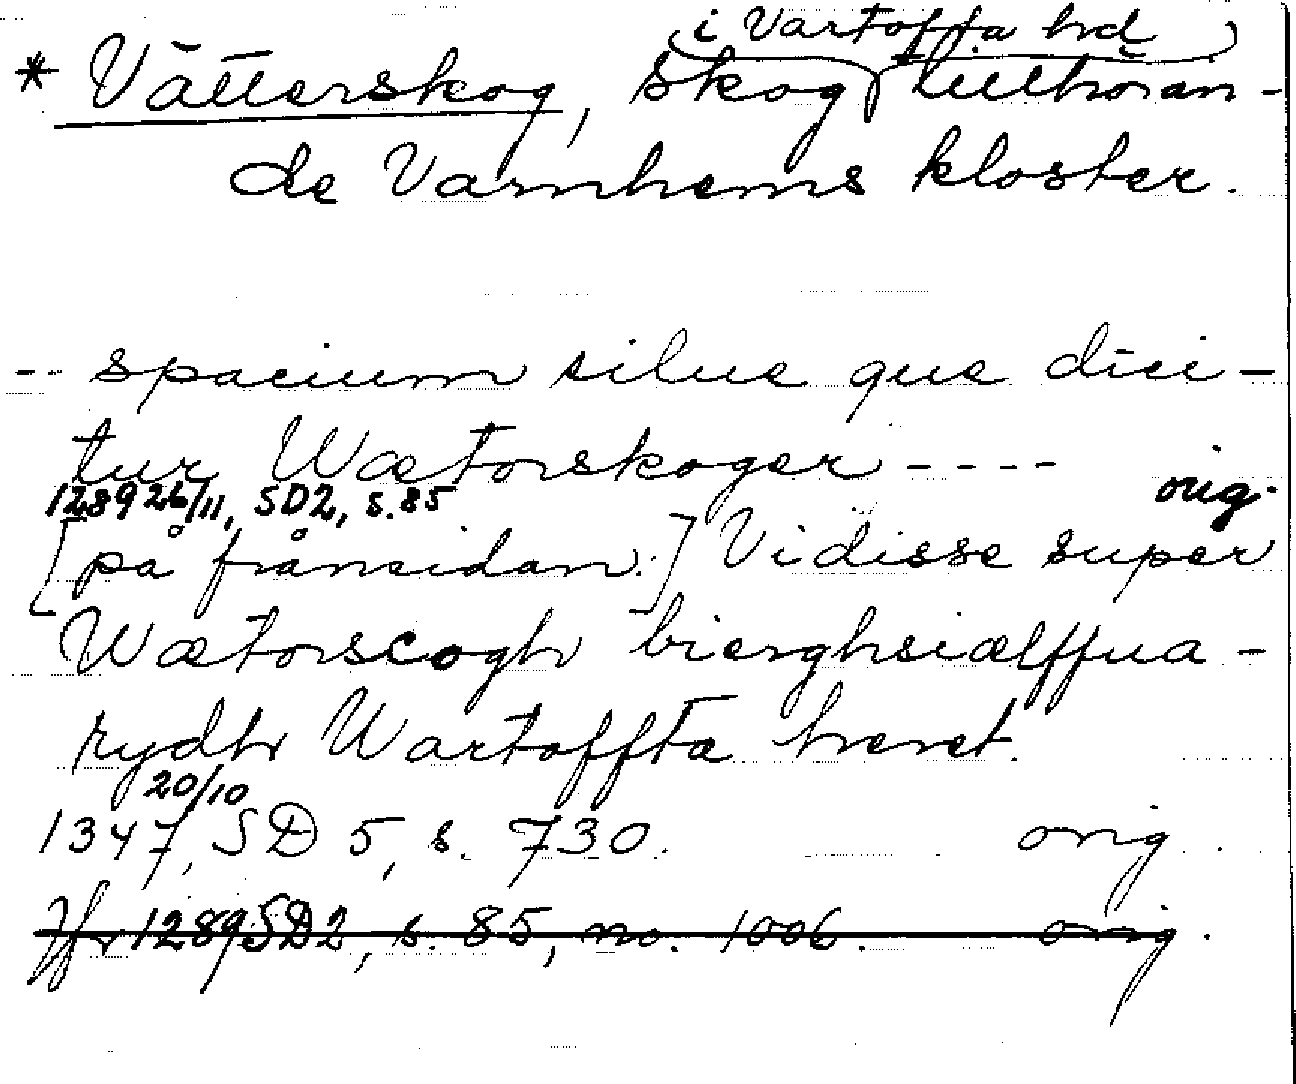 i Vartofta hd
* Vätterskog, skog tillhöran-
de Varnhems kloster.
-- spacium silue que dici-
tur Wætorskoger ----
1289 26/11, SD2, s. 85 orig.
[på frånsidan:] Vidisse super
Wætorscogh bierghsiælffua-
rydh Wartoffta heret.
20/10
1347, SD 5, s. 730. orig.
Jfr 1289 SD2, s. 85, no. 1006. orig.